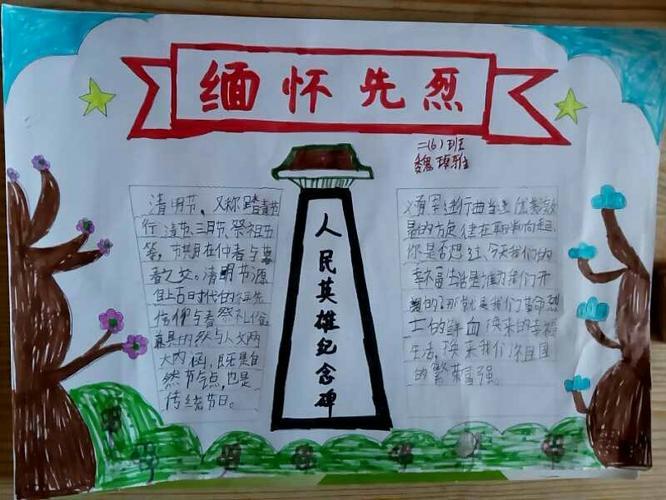 缅怀先烈
二(6)班
魏
人民英雄纪念碑
清明节，又称踏青节
行清节、三月节、祭祖节
等，节期在仲春与暮
春之交。清明节源
自上古时代的祖先
信仰与春祭礼俗
兼具自然与人文两
大内涵，既是自
然节气点，也是
传统节日。
你是否想过，今天我们的
幸福生活是谁为我们开
的？那就是我们革命烈
士的鲜血换来的幸福
生活，换来我们祖国
的繁荣富强。